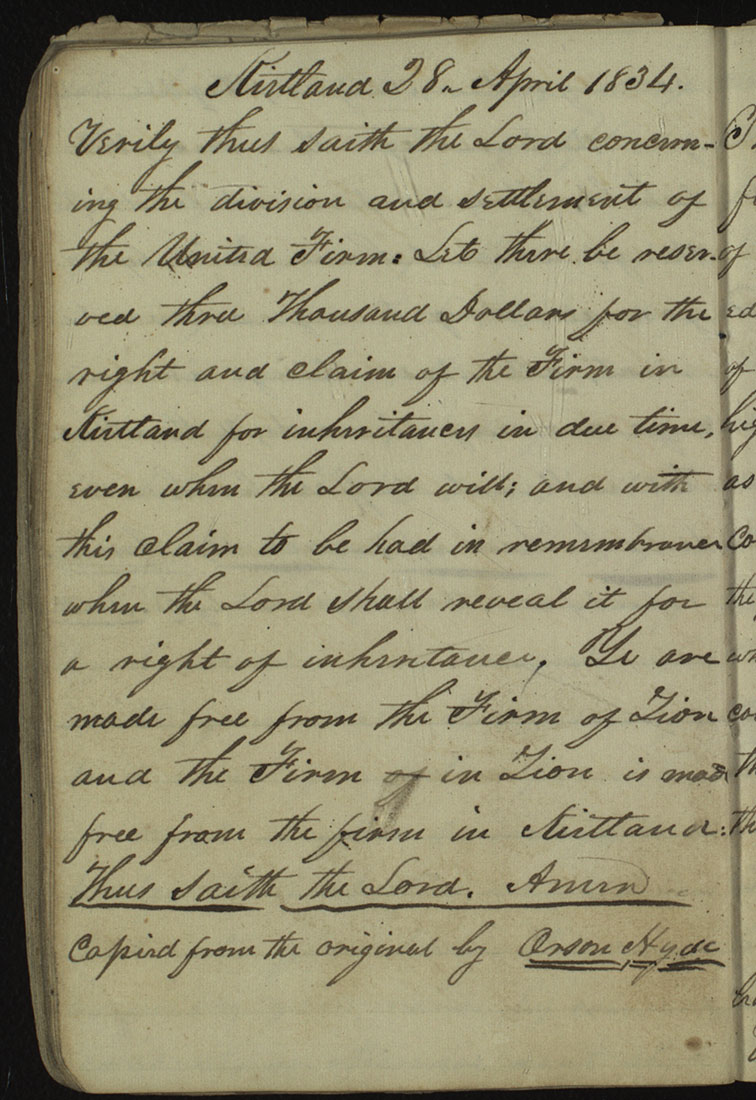 Kirtland 28. April 1834.
Verily thus saith the Lord concern-
ing the division and settlement of
the United Firm: Let there be reser-
ved three Thousand Dollars for the
right and claim of the Firm in
Kirtland for inheritances in due time,
even when the Lord will; and with
this claim to be had in remembrance
when the Lord shall reveal it for
a right of inheritance. Ye are
made free from the Firm of Zion
and the Firm of in Zion is made
free from the firm in Kirtland:
Thus saith the Lord. Amen
Copied from the original by Orson Hyde
of
ed
of
as